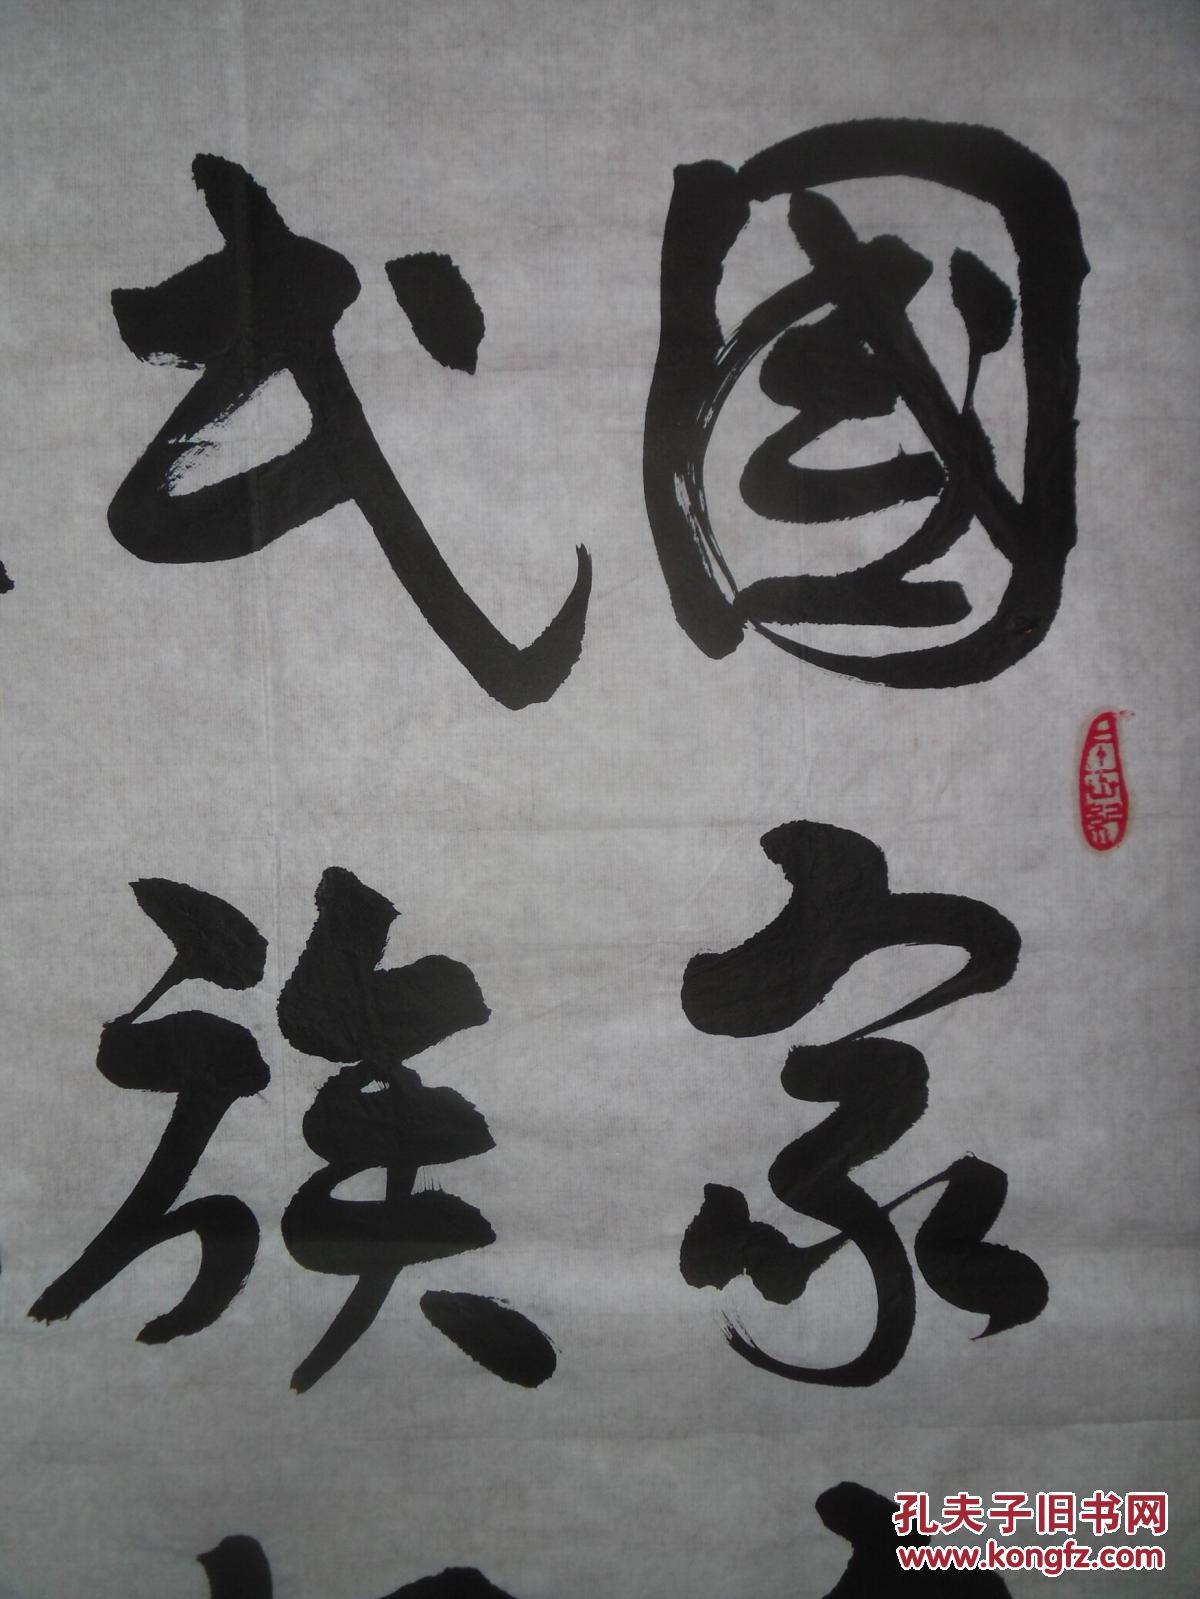 國家
民族
孔夫子旧书网
www.kongfz.com